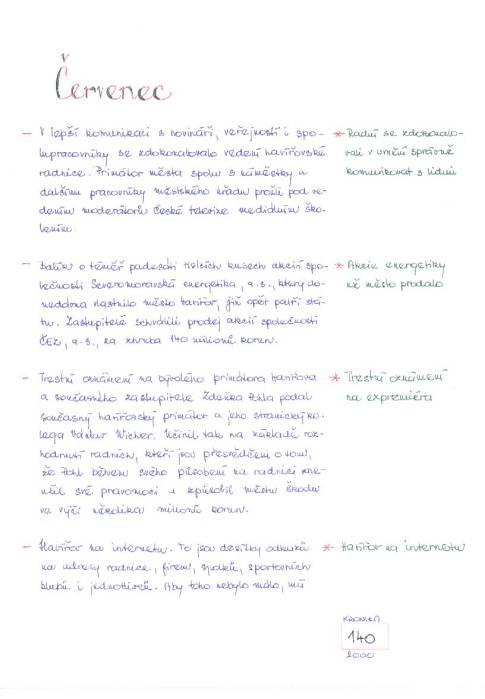 Červenec
– V lepší komunikaci s novináři, veřejností i spo-
lupracovníky se zdokonalovalo vedení havířovské
radnice. Primátor města spolu s náměstky a
dalšími pracovníky městského úřadu prošli pod ve-
dením moderátorů České televize mediálním ško-
lením.
* Radní se zdokonalo-
vali v umění správně
komunikovat s lidmi
– Balík o téměř padesáti tisících kusech akcií spo-
lečnosti Severomoravská energetika, a.s., který do-
nedávna vlastnilo město Havířov, již opět patří stá-
tu. Zastupitelé schválili prodej akcií společnosti
ČEZ, a.s., za zhruba 140 milionů korun.
* Akcie energetiky
už město prodalo
– Trestní oznámení na bývalého primátora Havířova
a současného zastupitele Zdeňka Pohla podal
současný havířovský primátor a jeho stranický ko-
lega Vdalav Wicher. Učinil tak na základě roz-
hodnutí radních, kteří jsou přesvědčeni o tom,
že Pohl během svého působení na radnici zne-
užil své pravomoci a způsobil městu škodu
ve výši několika milionů korun.
* Trestní oznámení
na expremiéra
– Havířov na internetu. To jsou desítky odkazů
na adresy radnice, firem, spolků, sportovních
klubů i jednotlivců. Aby toho nebylo málo, má
* Havířov na internetu
KRONIKA
140
2000